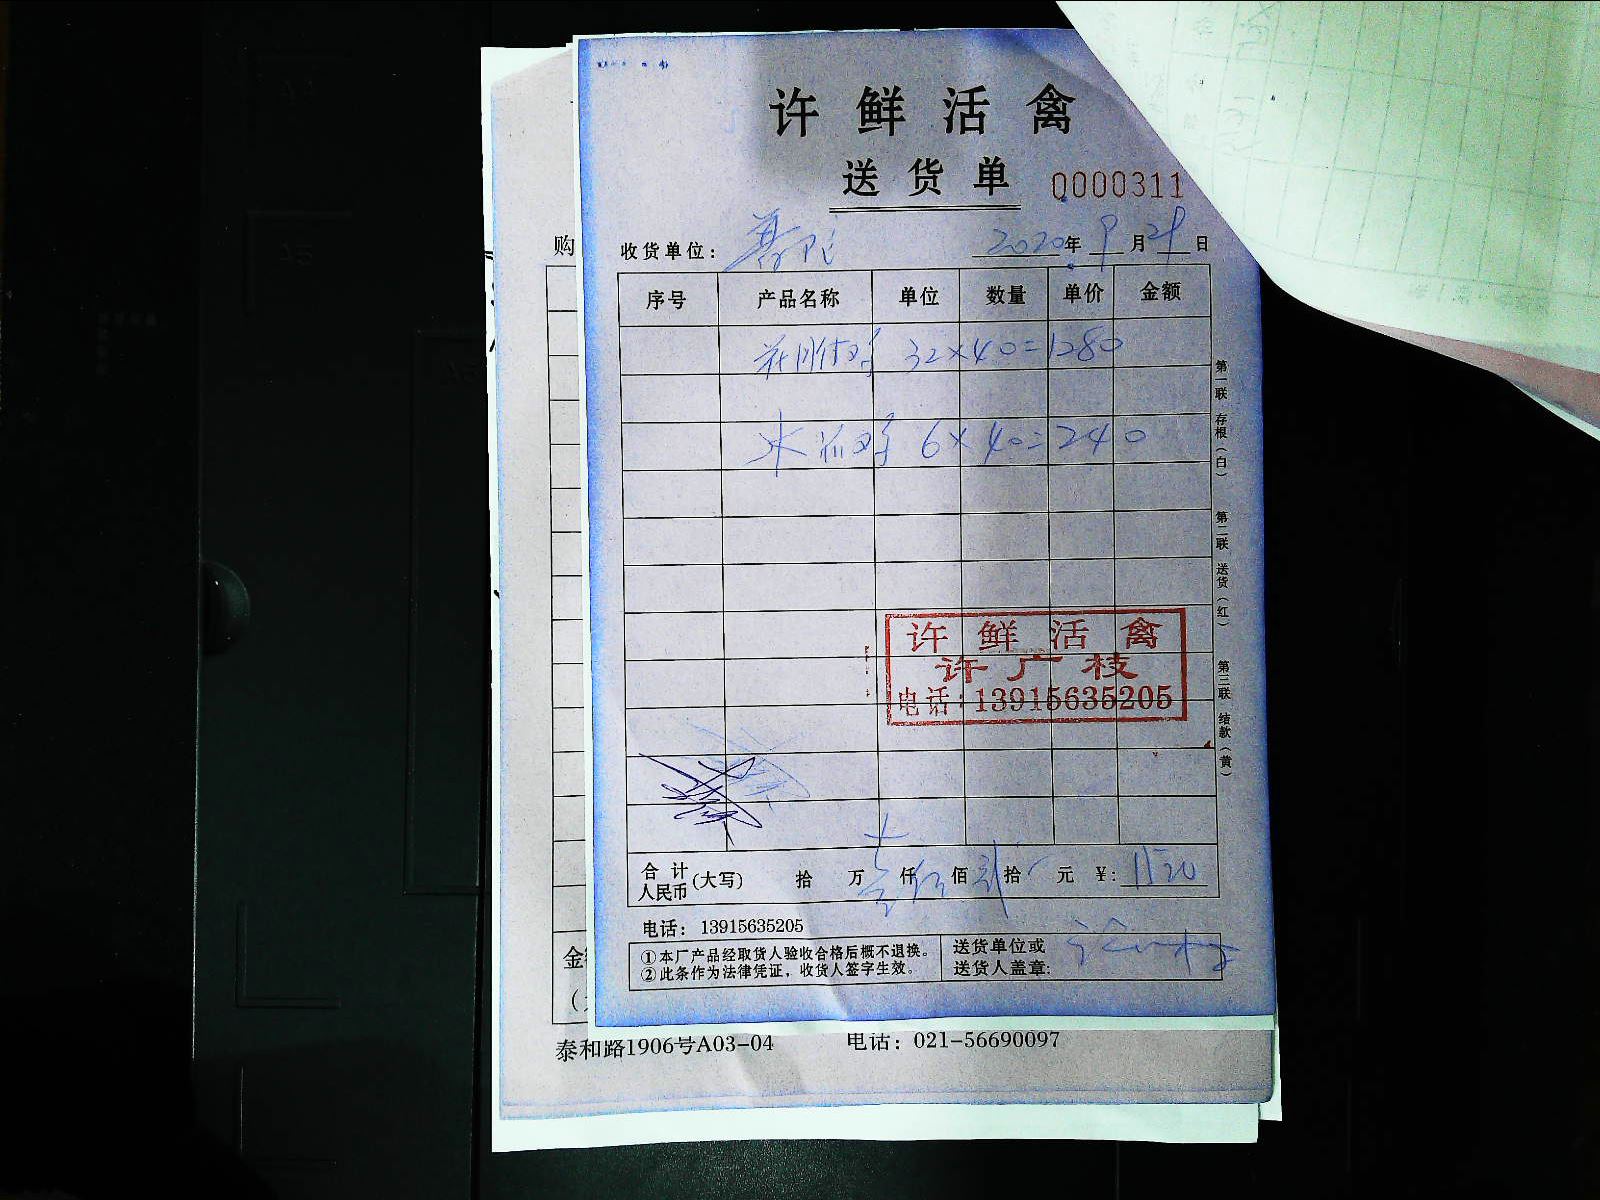 许鲜活禽
送货单 0000311
购
收货单位: 2020年9月29日
序号 产品名称 单位 数量 单价 金额
32×40=1280
水 鸡 6×40=240
第一联 存根(白) 第二联 送货(红) 第三联 结款(黄)
许鲜活禽
许广枝
电话:13915635205
合计人民币(大写) 拾 万 壹仟伍佰贰拾 元 ¥:1520
电话: 13915635205
①本厂产品经取货人验收合格后概不退换。
②此条作为法律凭证,收货人签字生效。
送货单位或
送货人盖章:
泰和路1906号A03-04 电话:021-56690097